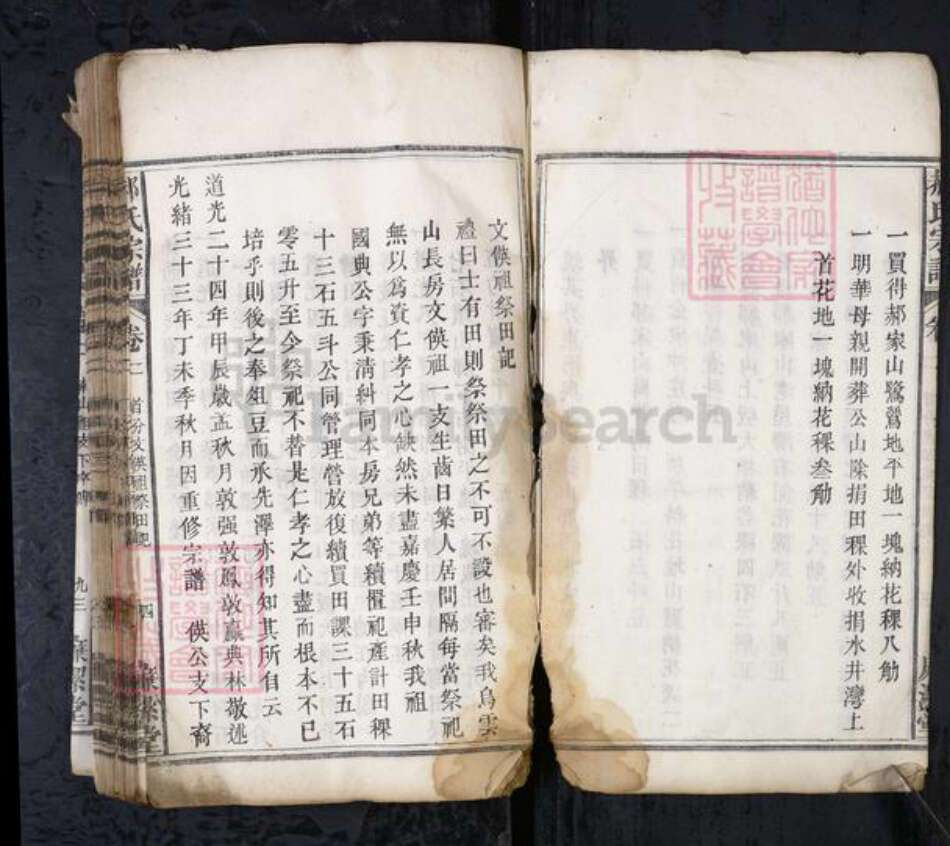 一買得郝家山鷺鶿地平地一塊納花稞八觔
一明華母親開葬公山除捐田稞外收捐水井灣上
首花地一塊納花稞叁觔
文偀祖祭田記
禮曰士有田則祭祭田之不可不設也審矣我烏雲
山長房文偀祖一支生齒日繁人居間隔每當祭祀
無以爲資仁孝之心缺然未盡嘉慶壬申秋我祖
國典公字秉清糾同本房兄弟等續置祀產計田稞
十三石五斗公同管理營放復續買田課三十五石
零五升至今祭祀不替是仁孝之心盡而根本不已
培乎則後之奉俎豆而承先澤亦得知其所自云
道光二十四年甲辰歲孟秋月敦强敦鳳敦贏典林敬述
光緒三十三年丁未季秋月因重修宗譜 偀公支下裔
氏宗譜 卷 首分文偀祖祭田記 四
FamilySearch